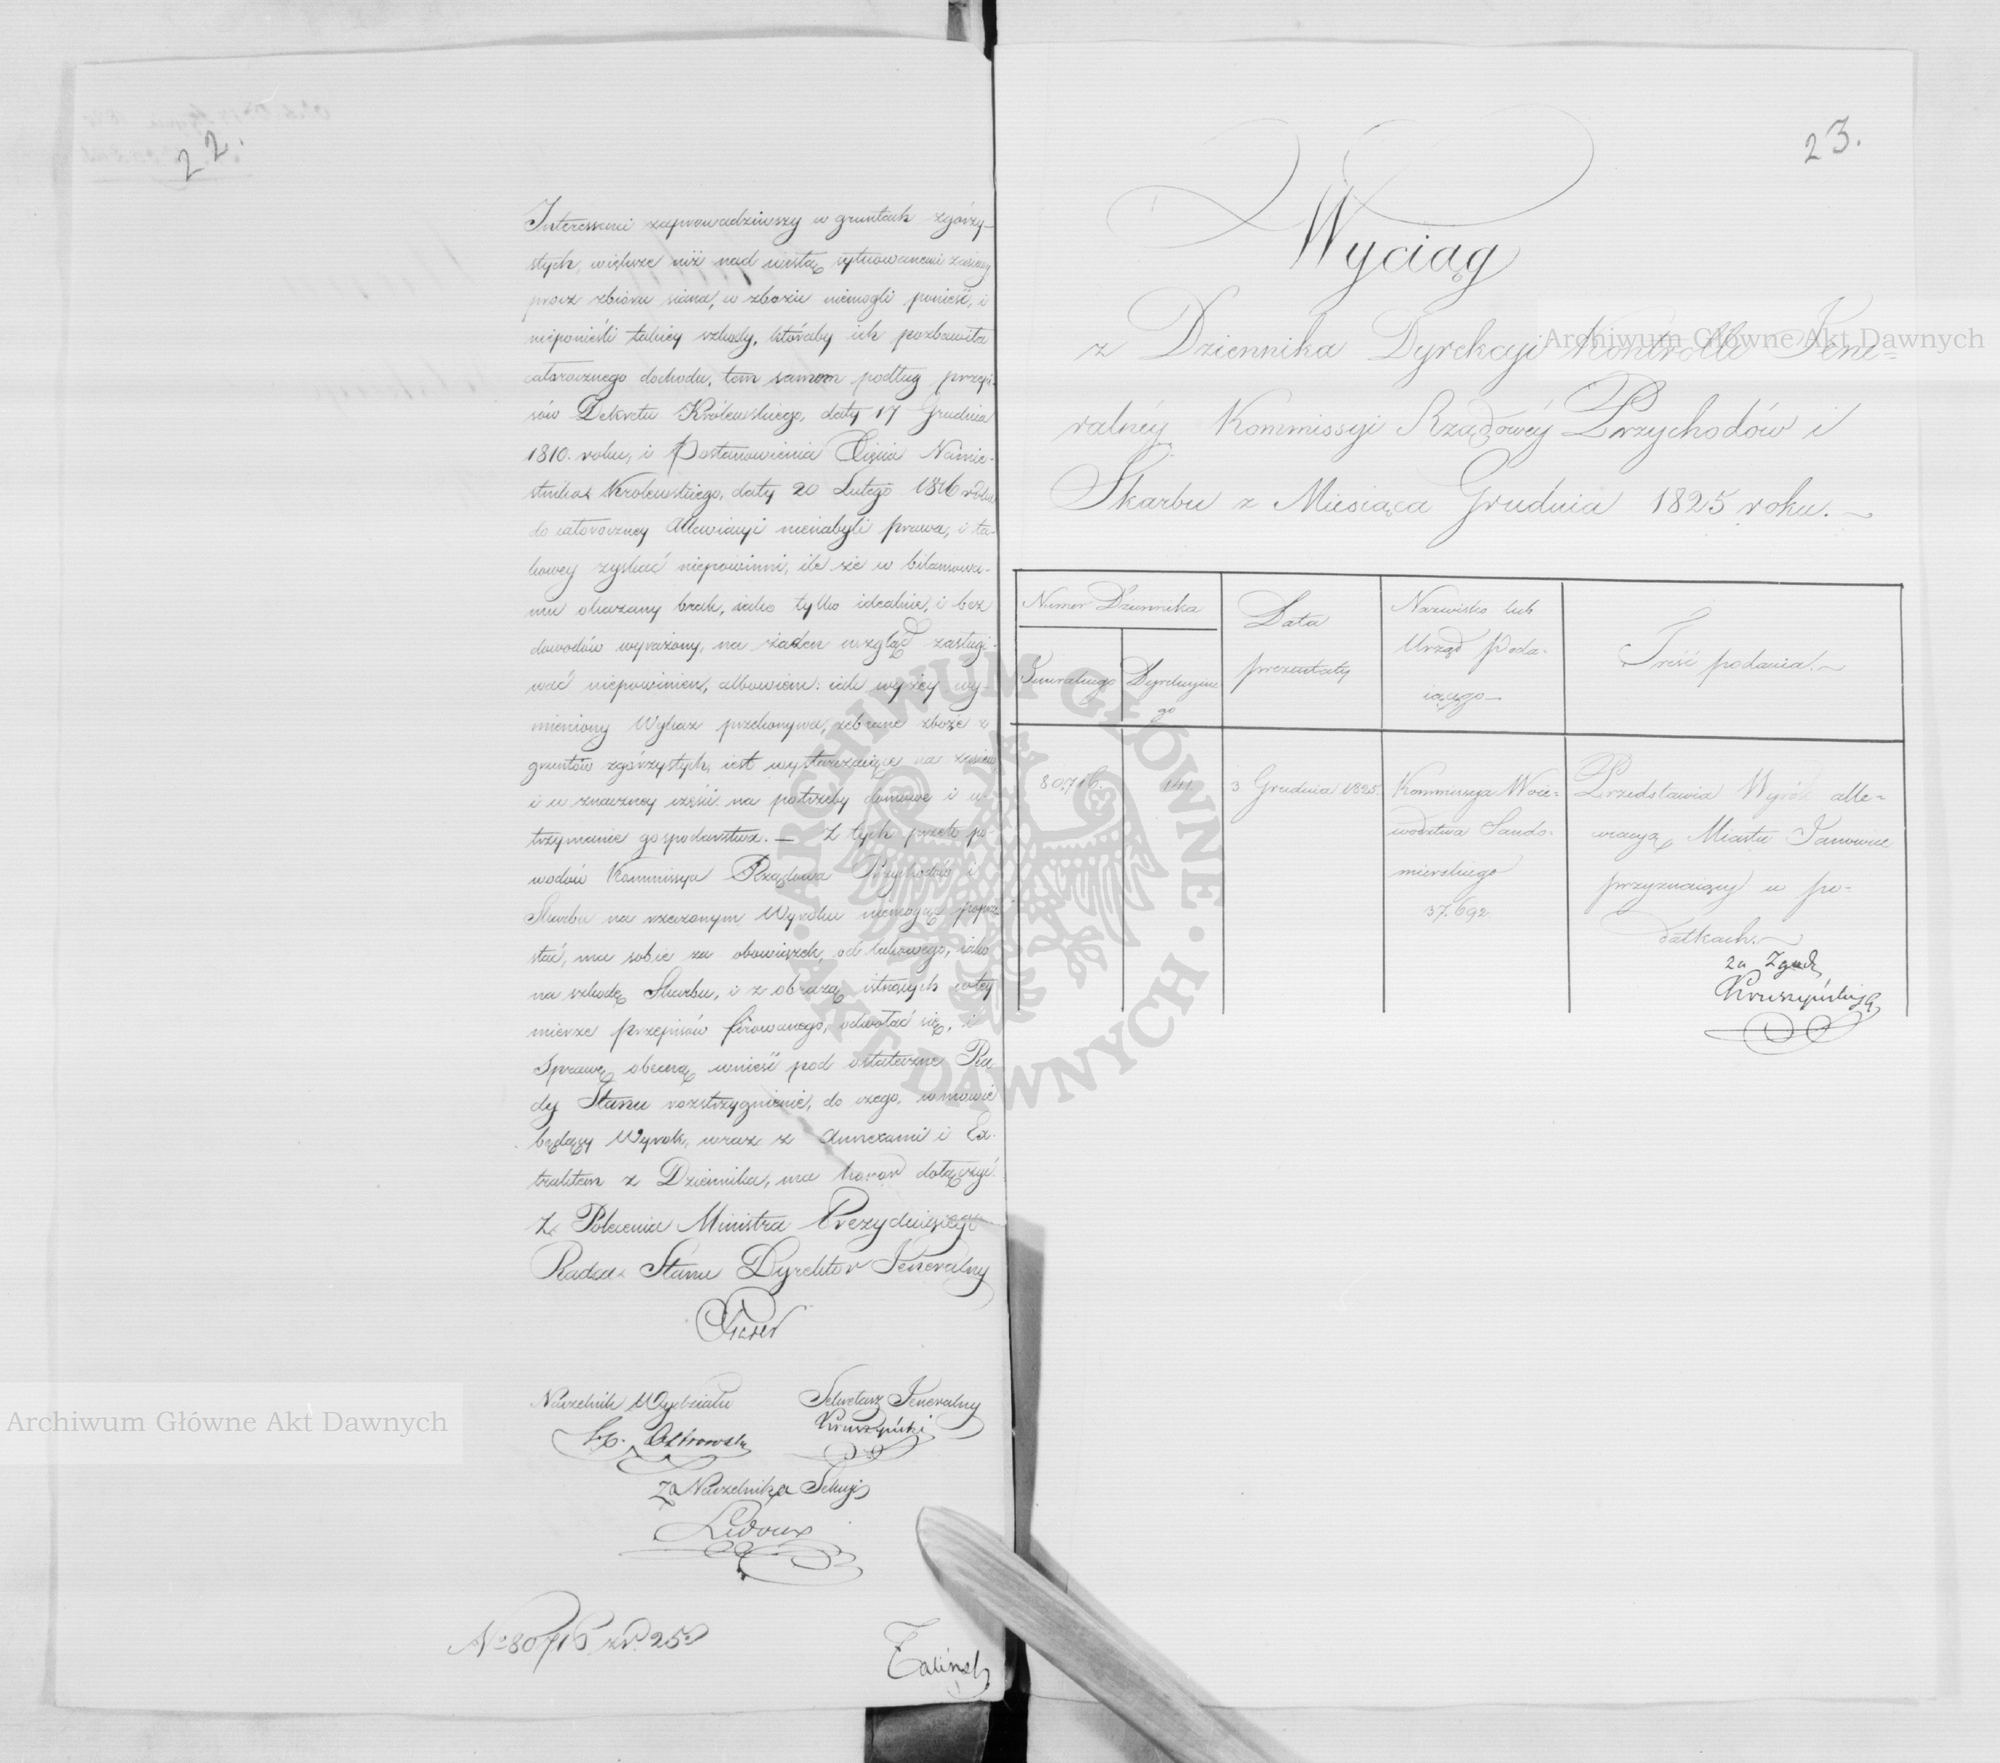 22.
Interessenci zaprowadziwszy w gruntach zgórzy-
stych, większe niż nad wisłą sytuowanemi zasiewy
procz zbioru siana, w zbożu niemogli ponieść, i
nieponieśli takiey szkody, któraby ich pozbawiła
całorocznego dochodu, tem samem podług przepi-
sów Dekretu Królewskiego, daty 17 Grudnia
1810. roku, i Postanowienia Xięcia Namie-
stnika Krolewskiego, daty 20 Lutego 1816 roku
do całoroczney Allewiacyi nienabyli prawa, i ta-
kowey zyskać niepowinni, ile że w bilansowa-
niu okazany brak, iako tylko idealnie, i bez
dowodów wyrażony, na żaden wzgląd zasługi-
wać niepowinien, albowiem: iak wyżey wy-
mieniony Wykaz przekonywa, zebrane zboże z
gruntów zgórzystych, iest wystarczaiące na zasiew
i w znaczney części na potrzeby domowe i u-
trzymanie gospodarstwa. — Z tych przeto po-
wodów Kommissya Rządowa Przychodów i
Skarbu na rzeczonym Wyroku niemogąc poprze-
stać, ma sobie za obowiązek, od takowego, iako
na szkodę Skarbu, i z obrazą istnących w tey
mierze przepisów ferowanego, odwołać się, i
Sprawę obecną wnieść pod ostateczne Ra-
dy Stanu rozstrzygnienie, do czego, w mowie
będący Wyrok, wraz z Annexami i Ex-
traktem z Dziennika, ma honor dołączyć.
Z Polecenia Ministra Prezyduiącego
Radca Stanu Dyrektor Jeneralny
Naczelnik Wydziału Sekretarz Jeneralny
Ostrowski Kruszyński
Za Naczelnika Sekcyi
Ledoux
No 80716 z r. 25o
23.
Wyciąg
z Dziennika Dyrekcyi Kontrolli Jene-
ralnéy Kommissyi Rządowéy Przychodów i
Skarbu z Miesiąca Grudnia 1825 roku. ~
Numer Dziennika
Generalnego Dyrekcyine
go
Data
prezentaty
Nazwisko lub
Urząd Poda-
iącego —
Treść podania. ~
80716.
3 Grudnia 1825.
Kommissya Woie-
wództwa Sando-
mierskiego
37.692.
Przedstawia Wyrok alle-
wiacyą Miastu Janowiec
przyznaiący w po-
datkach. ~
za Zgod
Kruszyński
Archiwum Główne Akt Dawnych
Archiwum Główne Akt Dawnych
ARCHIWUM GŁÓWNE · AKT DAWNYCH ·